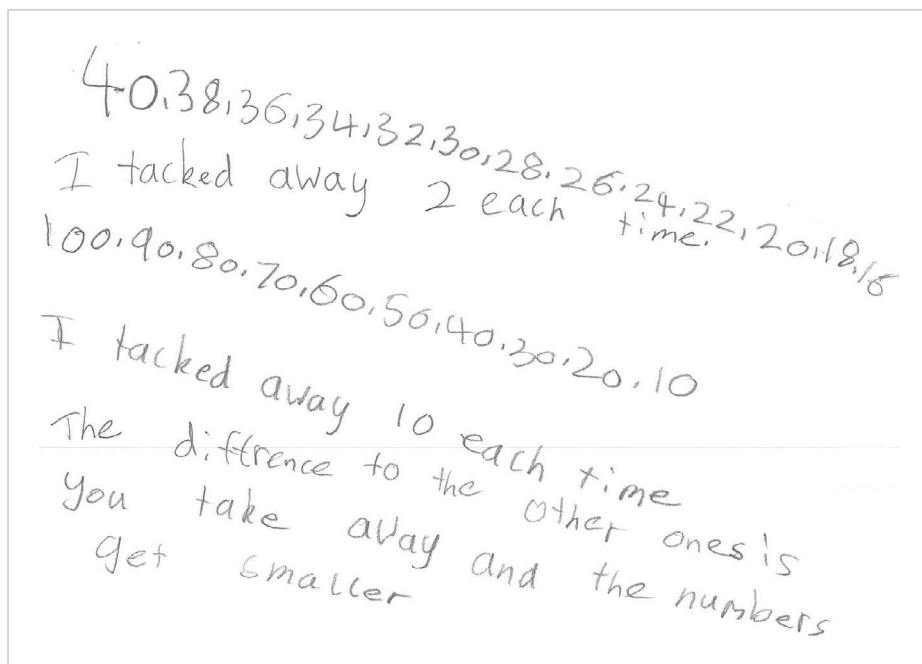 40,38,36,34,32,30,28,26,24,22,20,18,16
I tacked away 2 each time.
100,90,80,70,60,50,40,30,20,10
I tacked away 10 each time
The diffrence to the other ones is
you take away and the numbers
get smaller